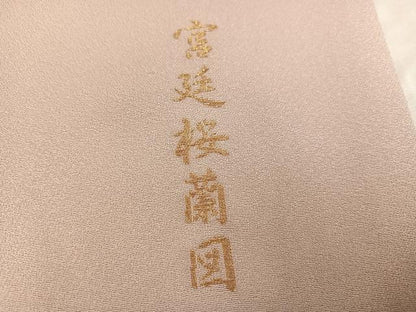 宮廷桜蘭図